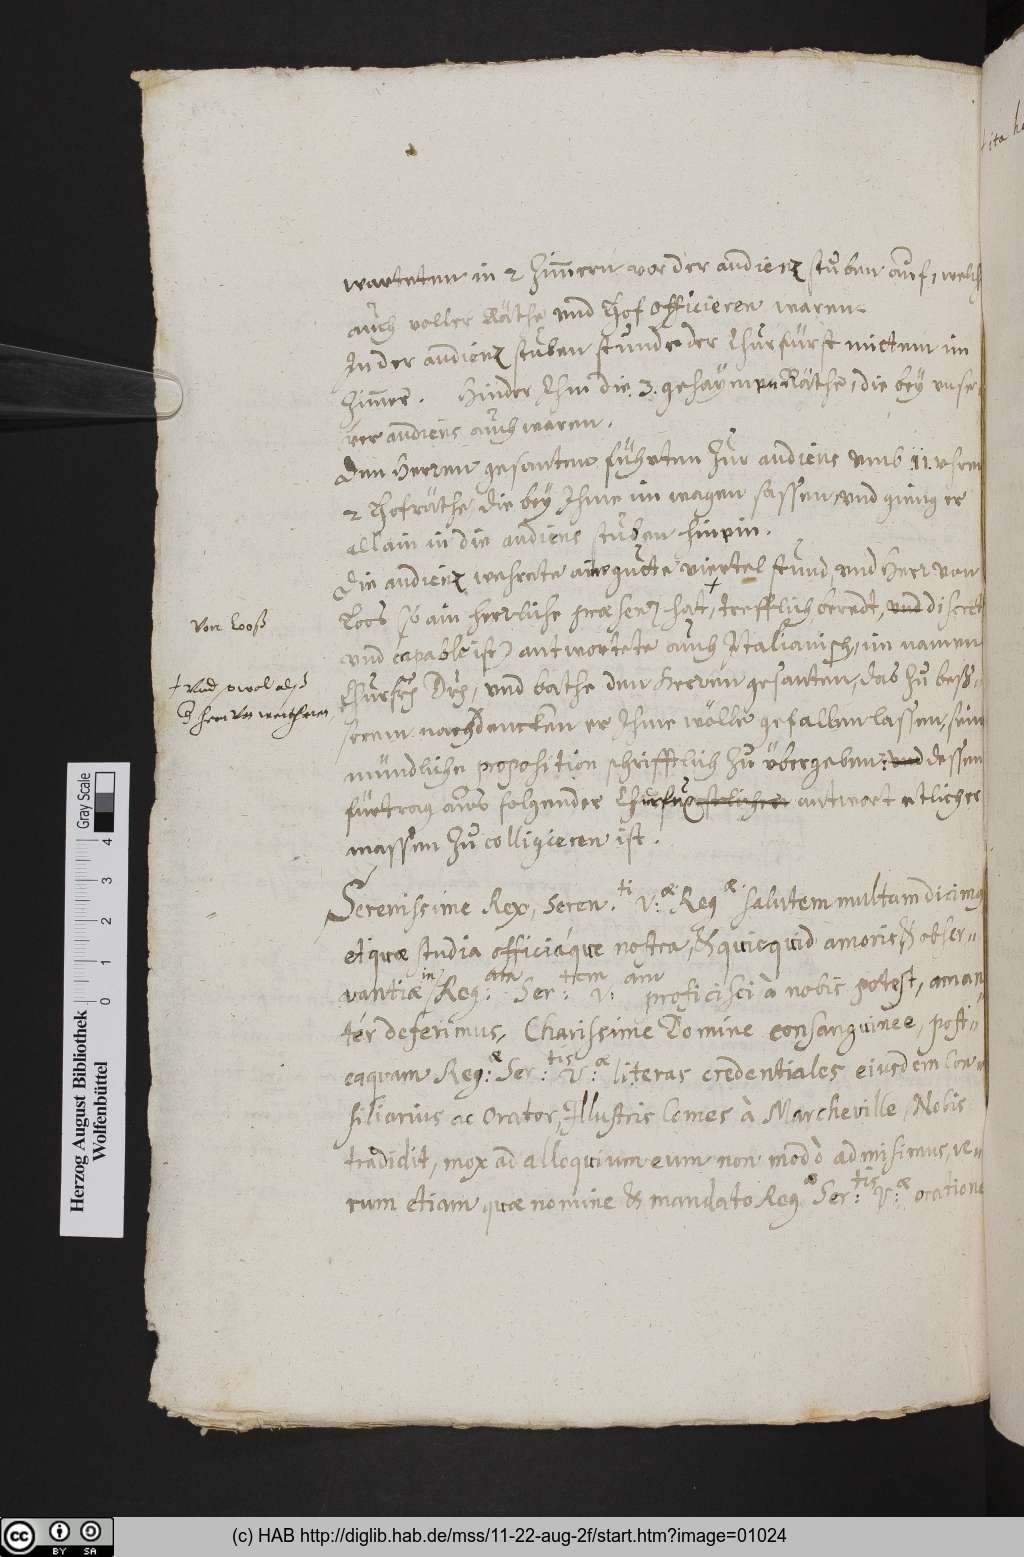 warteten in 2 Zim̄ern vor der audienz stuben auf, welch
auch voller Räthe und Hof officieren waren.
In der audienz stuben stunde der Churfürst mitten im
Zim̄er. Hinder Ihm die 3. gehaymen Räthe, die bey unse=
rer audiens auch waren.
Den Herren gesanten führten zur audiens umb 11. uhren
2 Hofräthe die bey Ihme im wagen sassen, und gieng er
allain in die audiens stuben hinein.
Die audienz wehrete ain gutte viertel stund, und Herr von
Loos (so ain herrliche præsenz hat, + trefflich beredt, und discret
und capable ist) antwortete auch Italianisch, im namen
Churfr. Dht, und bathe den Herren gesanten, das zu bess=
serem nachdencken er Ihme wölle gefallen lassen, sein
mündliche proposition schrifftlich zu übergeben: und dessen
fürtrag aus folgender Churfürstlicher antwort etlicher
massen zu colligieren ist.
Von Looß
+ und sowol als
Herr von Werthern,
Serenissime Rex, Seren.ti V:æ Regæ salutem multam dicimus
etiquæ studia officiáque nostra, & quicquid amoris, & obser=
vantiæ in Reg:am Ser:tem V:am proficisci à nobis potest, aman
tér deferimus, Charissime Domine consanguinee, posti=
eaquam Reg:æ Ser:tis V:æ literas credentiales eiusdem Con=
siliarius ac Orator, Illustris Comes à Marcheville, Nobis
tradidit, mox ad alloquium eum non modò admisimus, ve=
rum etiam quæ nomine & mandato Regæ Ser:tis V:æ oratione
Herzog August Bibliothek
Wolfenbüttel
Gray Scale
0 1 2 3 4
cc BY SA
(c) HAB http://diglib.hab.de/mss/11-22-aug-2f/start.htm?image=01024